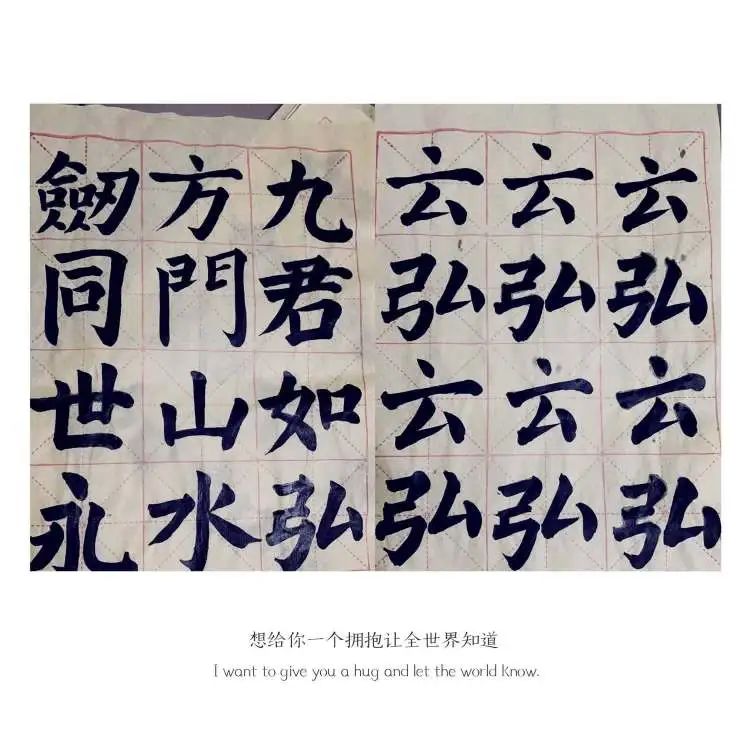 九君如弘
方門山水
劒同世永
云弘云弘
云弘云弘
云弘云弘
想给你一个拥抱让全世界知道
I want to give you a hug and let the world know.